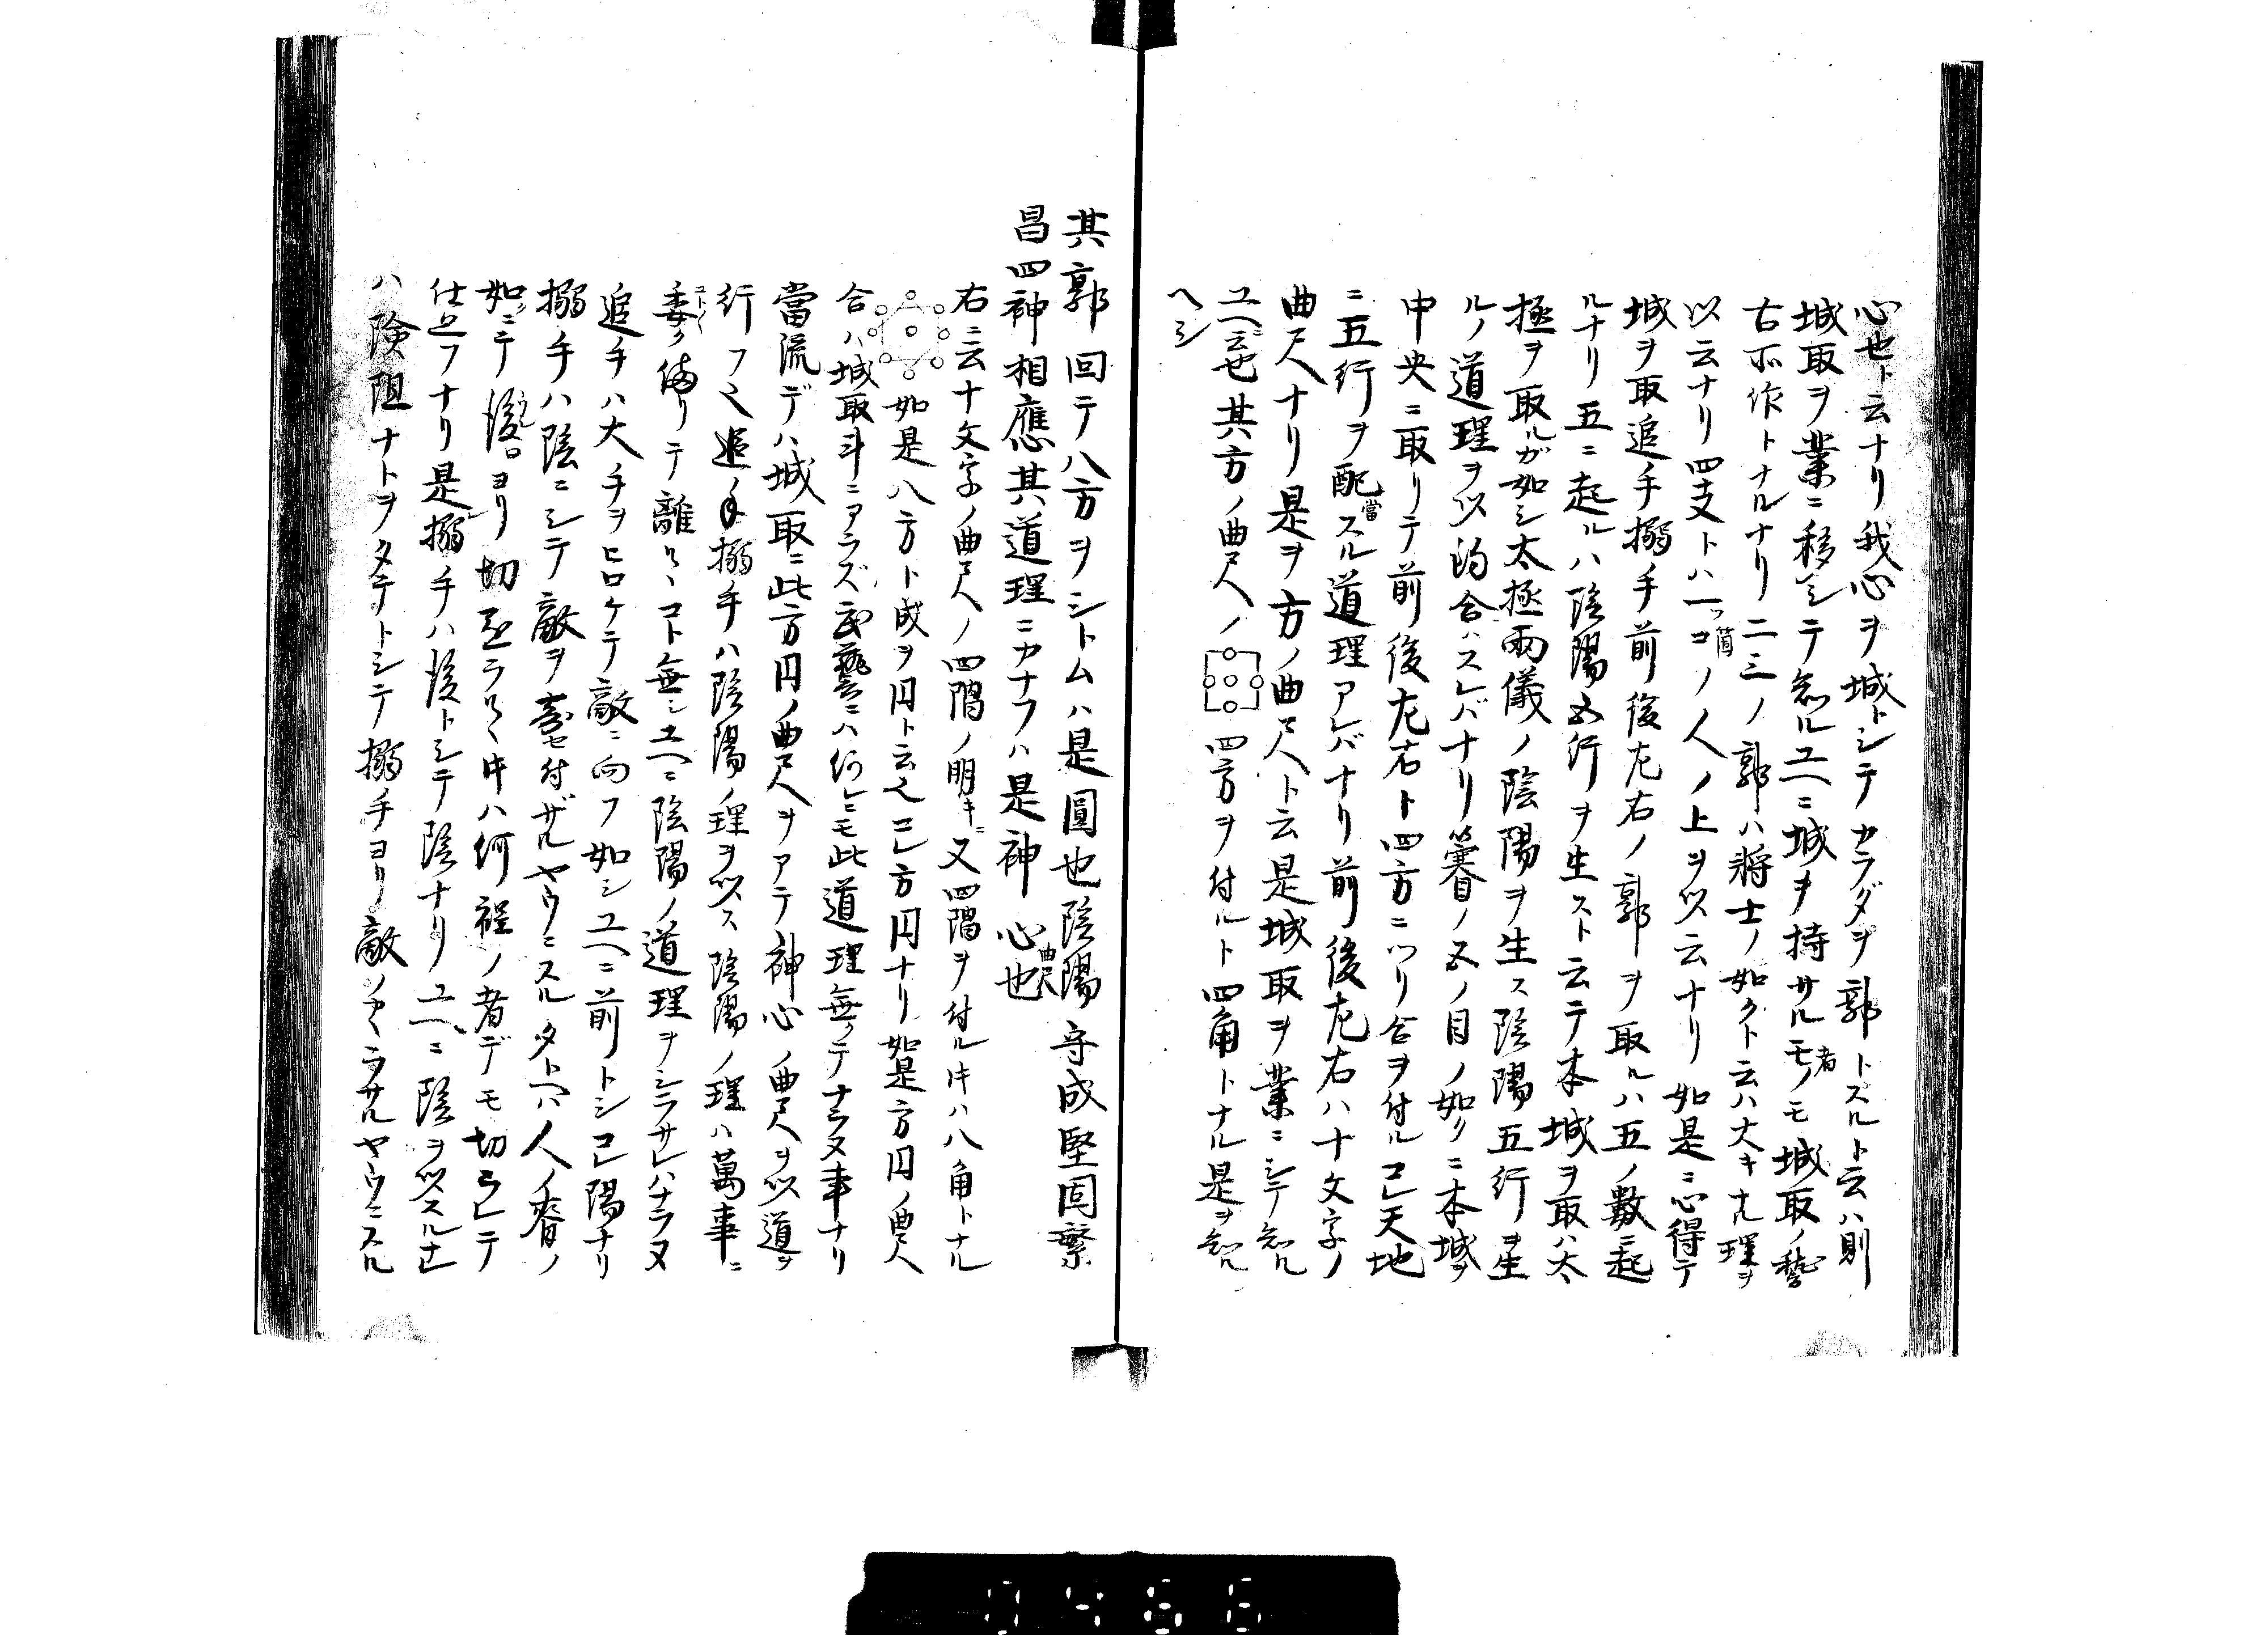 心也ト云ナリ我心ヲ城トシテカラダヲ郭トスルト云ハ則
城取ヲ業ニ移シテ知ルユヘニ城ヲ持サルモノ者モ城取ノ
古所作トナルナリ二三ノ郭ハ將士ノ如クト云ハ大キナル理ヲ
以云ナリ四支トハ一ツ箇コノ人ノ上ヲ以云ナリ如是ニ心得テ
城ヲ取追手搦手前後左右ノ郭ヲ取ルハ五ノ數ニ起
ルナリ五ニ起ルハ陰陽五行ヲ生スト云テ本城ヲ取ハ太
極ヲ取ルガ如シ太極兩儀ノ陰陽ヲ生ス陰陽五行ヲ生
ルノ道理ヲ以的合ハスレバナリ簺ノ五ノ目ノ如クニ本城ヲ
中央ニ取リテ前後左右ト四方ニツリ合ヲ付ルコレ天地
ニ五行ヲ配當スル道理アレバナリ前後左右ハ十文字ノ
曲尺ナリ是ヲ方ノ曲尺ト云是城取ヲ業ニシテ知ル
ユヘニ云也其方ノ曲尺ノ四方ヲ付ルト四角トナル是ヲ知ル
ヘシ
其郭回テ八方ヲシトムハ是圓也陰陽守成堅固繁
昌四神相應其道理ニカナフハ是神心曲尺也
右ニ云十文字ノ曲尺ノ四間ノ明キニ又四隅ヲ付ルキハ八角トナル
如是八方ト成ヲ円ト云ヘコレ方円ナリ如是方円ノ曲尺
合ハ城取斗ニアラズ武藝ニハ何レニモ此道理無クテナラヌ事ナリ
當流デハ城取ニ此方円ノ曲尺ヲアテ神心ノ曲尺ヲ以道ヲ
行フヘ追手搦手ハ陰陽ノ理ヲ以ス陰陽ノ理ハ萬事ニ
委ク備リテ離ルヽコト無シユヘニ陰陽ノ道理ヲシラサレハナラヌ
追手ハ大手ヲヒロケテ敵ニ向フ如シユヘニ前トシコレ陽ナリ
搦手ハ陰ニシテ敵ヲ寄セ付ザルヤウニスルタトヘハ人ノ脊ノ
如ニテ後ロヨリ切ラルヽキハ何程ノ者デモ切ラレテ
仕モフナリ是搦手ハ後トシテ陰ナリユヘニ陰ヲ以スルナレ
ハ険阻ナトヲタテトシテ搦手ヨリ敵ノ来ラサルヤウニスル